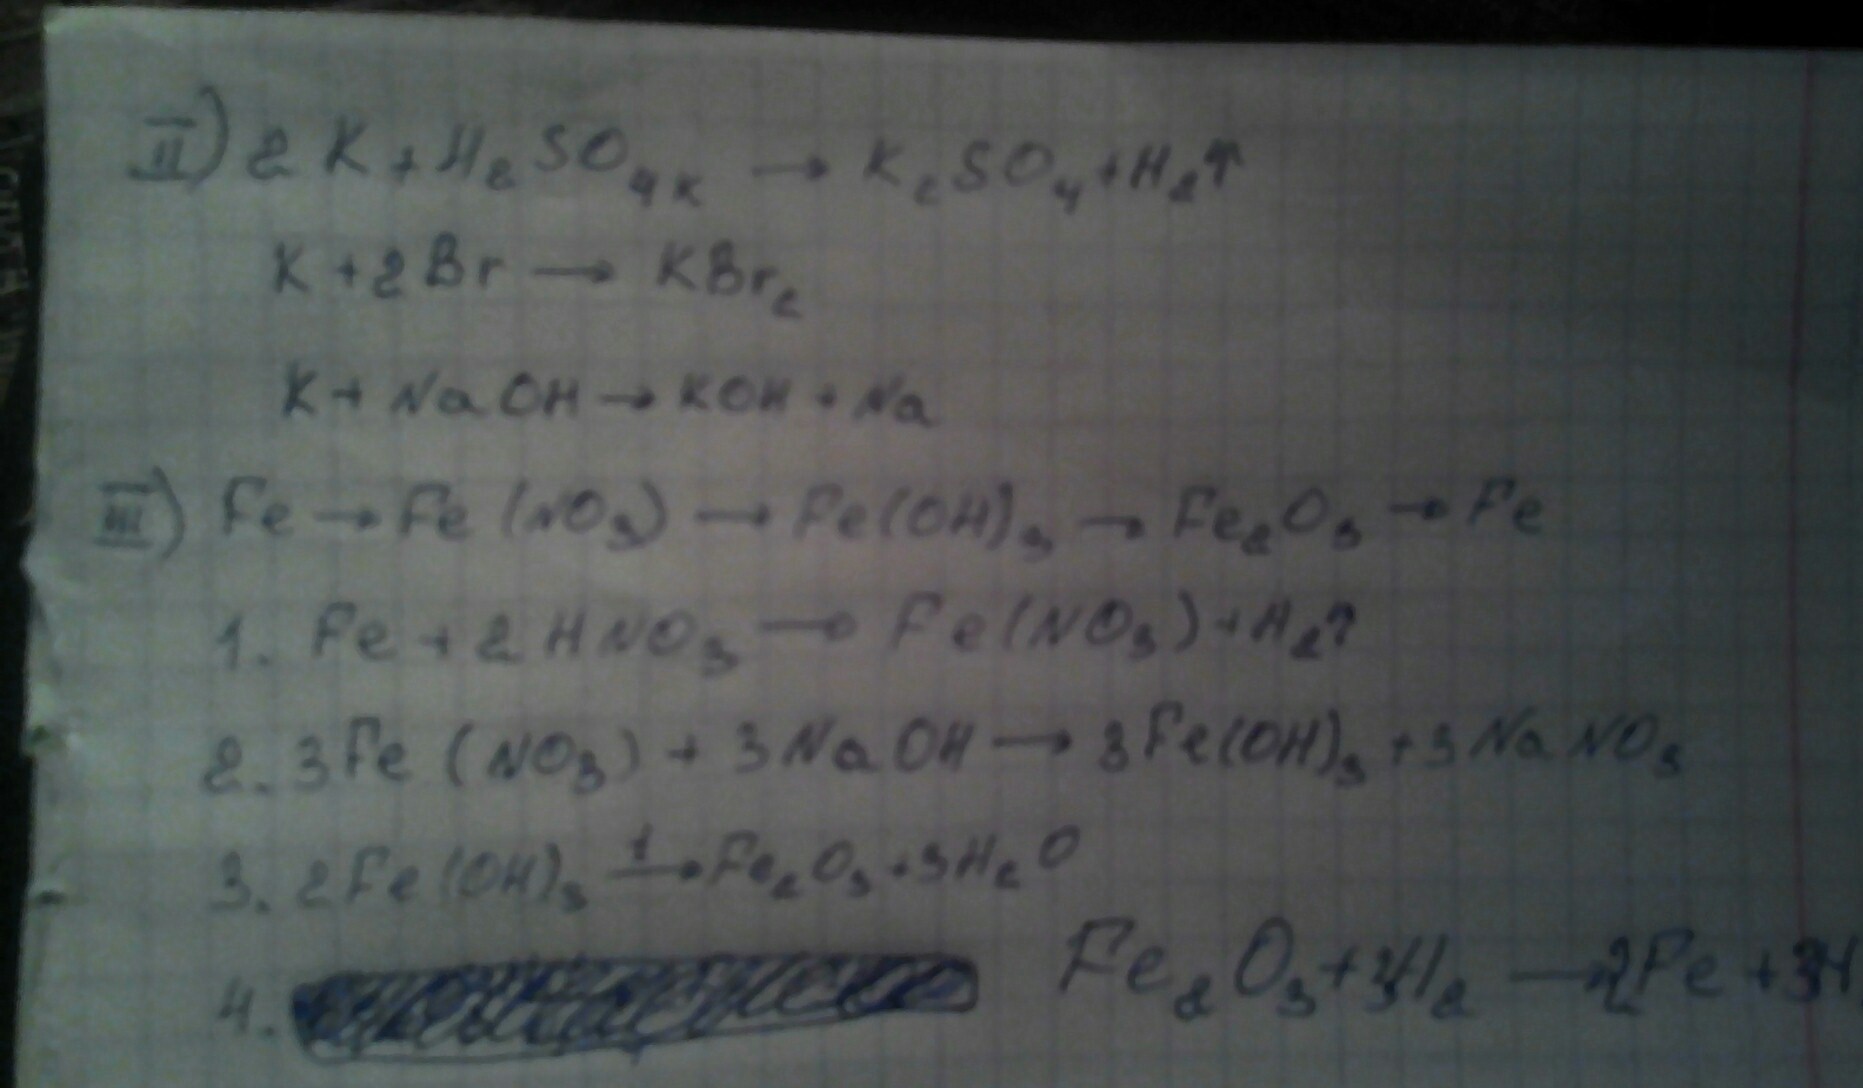 II) 2K + H₂SO₄ к → K₂SO₄ + H₂↑
K + 2Br → KBr₂
K + NaOH → KOH + Na
III) Fe → Fe(NO₃) → Fe(OH)₃ → Fe₂O₃ → Fe
1. Fe + 2HNO₃ → Fe(NO₃) + H₂↑
2. 3Fe(NO₃) + 3NaOH → 3Fe(OH)₃ + 3NaNO₃
3. 2Fe(OH)₃ → Fe₂O₃ + 3H₂O
4. Fe₂O₃ + 3H₂ → 2Fe + 3H